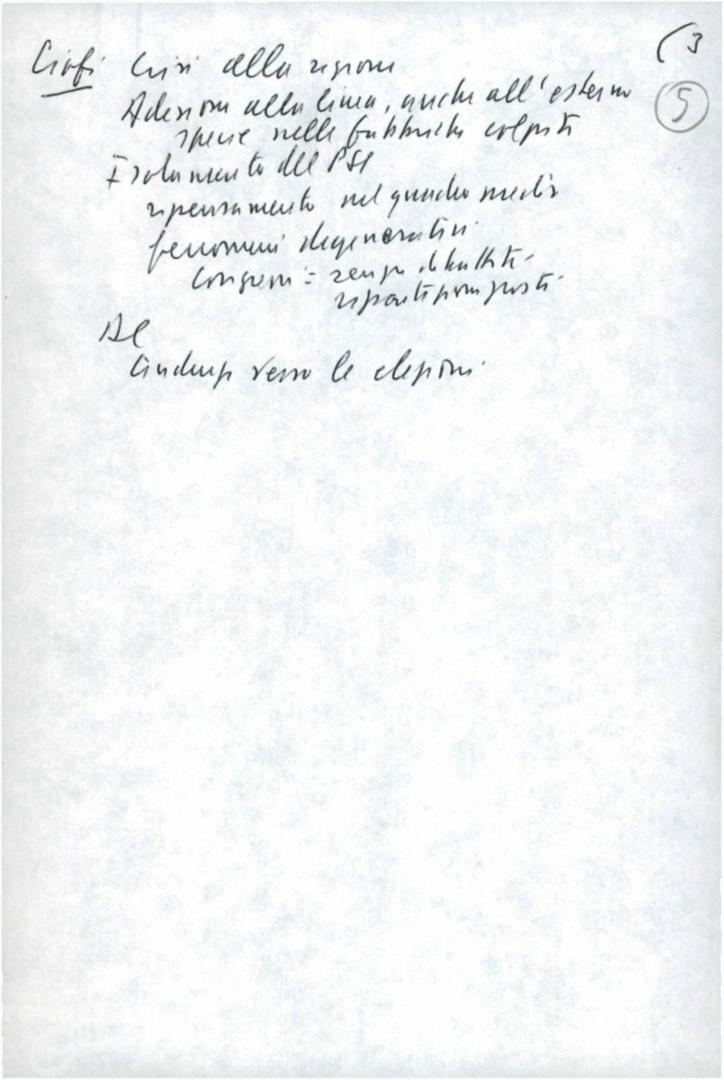 (3
5
Ciofi Crisi alla regione
Adesione alla linea, anche all'esterno
specie nelle fabbriche colpite
Isolamento del PSI
ripensamento nel quadro medio
fenomeni degenerativi
Congressi = senza dibattiti
Ac
verso le elezioni